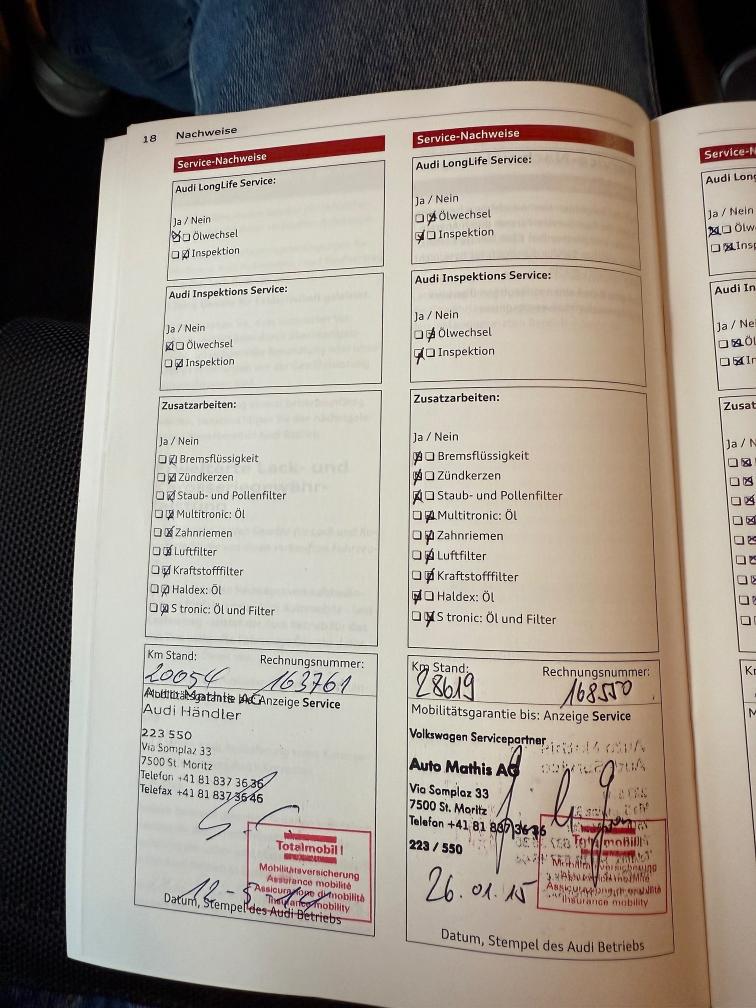 18 Nachweise
Service-Nachweise
Audi LongLife Service:
Ja / Nein
Ölwechsel
Inspektion
Audi Inspektions Service:
Ja / Nein
Ölwechsel
Inspektion
Zusatzarbeiten:
Ja / Nein
Bremsflüssigkeit
Zündkerzen
Staub- und Pollenfilter
Multitronic: Öl
Zahnriemen
Luftfilter
Kraftstofffilter
Haldex: Öl
S tronic: Öl und Filter
Km Stand: Rechnungsnummer:
20054 163761
Mobilitätsgarantie bis: Anzeige Service
Auto Mathis AG
Audi Händler
223 550
Via Somplaz 33
7500 St. Moritz
Telefon +41 81 837 36 36
Telefax +41 81 837 36 46
Totalmobil!
Mobilitätsversicherung
Assurance mobilité
Assicurazione di mobilità
Insurance mobility
Datum, Stempel des Audi Betriebs
Service-Nachweise
Audi LongLife Service:
Ja / Nein
Ölwechsel
Inspektion
Audi Inspektions Service:
Ja / Nein
Ölwechsel
Inspektion
Zusatzarbeiten:
Ja / Nein
Bremsflüssigkeit
Zündkerzen
Staub- und Pollenfilter
Multitronic: Öl
Zahnriemen
Luftfilter
Kraftstofffilter
Haldex: Öl
S tronic: Öl und Filter
Km Stand: Rechnungsnummer:
28619 168550
Mobilitätsgarantie bis: Anzeige Service
Volkswagen Servicepartner
Auto Mathis AG
Via Somplaz 33
7500 St. Moritz
Telefon +41 81 837 36 36
223 / 550
26.01.15
Totalmobil!
Mobilitätsversicherung
Assurance mobilité
Assicurazione di mobilità
Insurance mobility
Datum, Stempel des Audi Betriebs
Service-N
Audi Long
Ja / Nein
Ölw
Insp
Audi In
Ja / Ne
Öl
In
Zusat
Ja / N